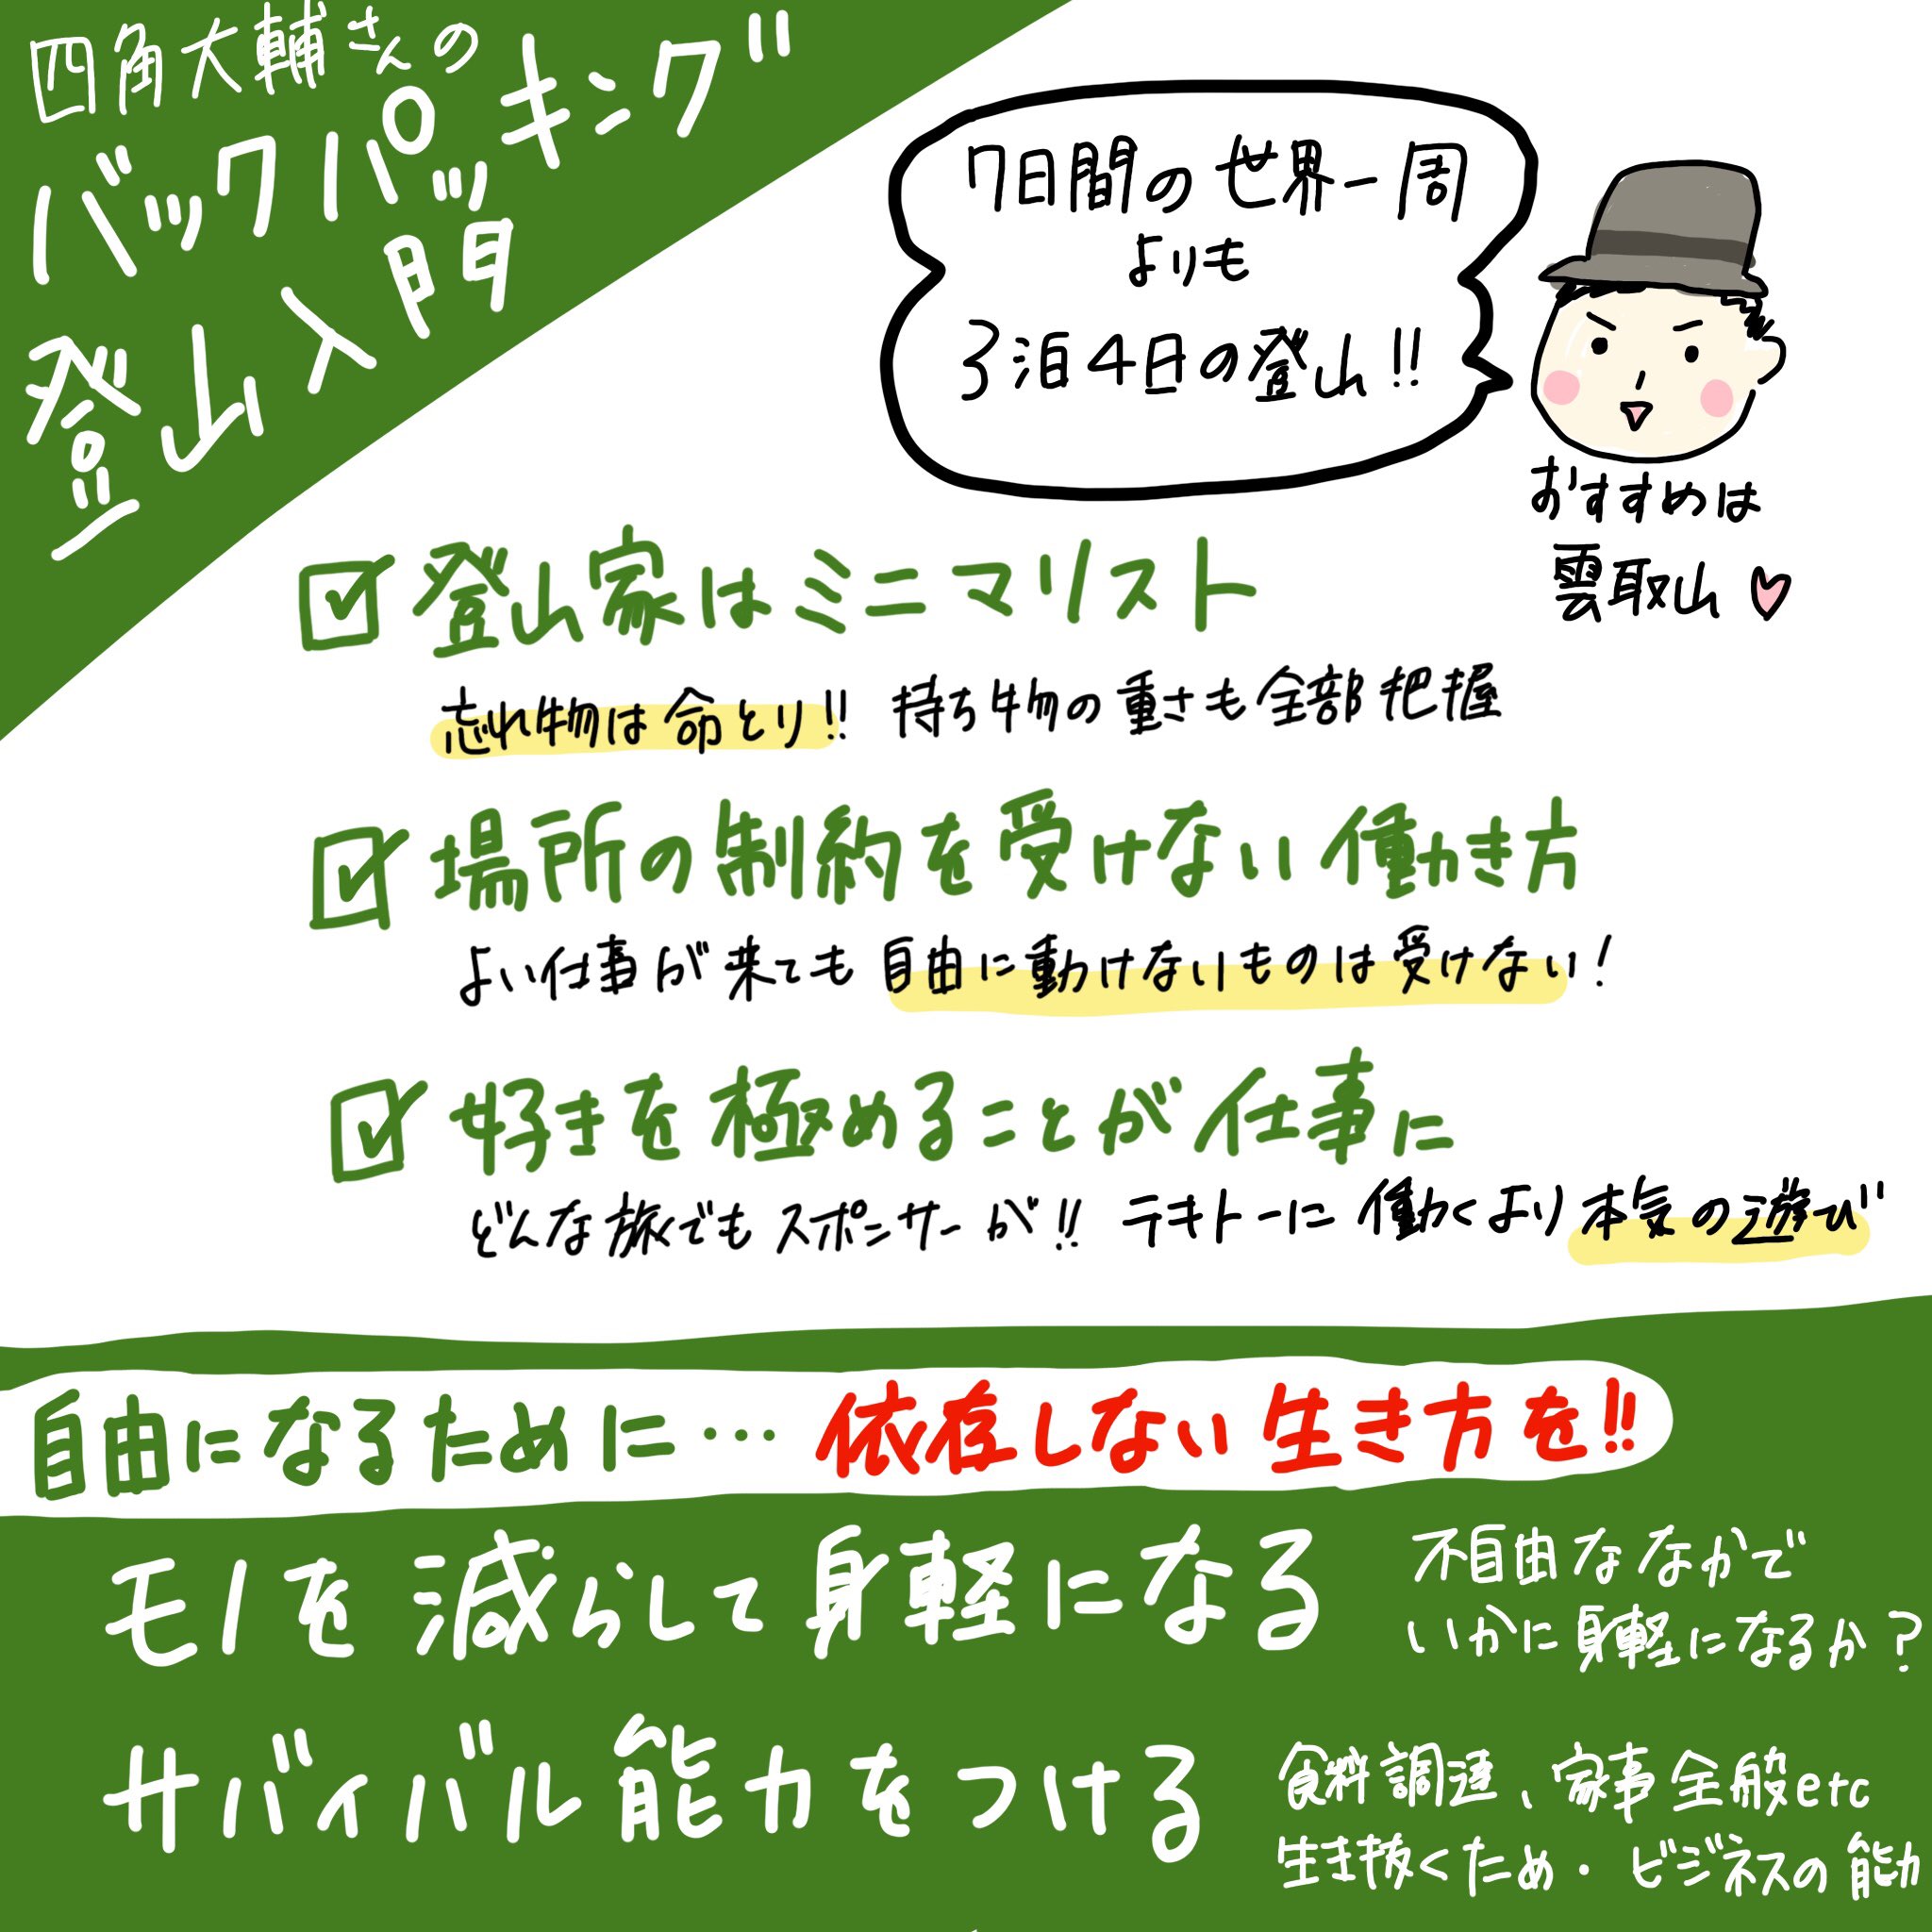 四角大輔さんの
バックパッキング
登山入門
7日間の世界一周
よりも
3泊4日の登山!!
おすすめは
雲取山
登山家はミニマリスト
忘れ物は命とり!! 持ち物の重さも全部把握
場所の制約を受けない働き方
よい仕事が来ても自由に動けないものは受けない!
好きを極めることが仕事に
どんな旅でもスポンサーが!! テキトーに働くより本気の遊び
自由になるために…依存しない生き方を!!
モノを減らして身軽になる
不自由ななかで
いかに身軽になるか?
サバイバル能力をつける
食料調達、家事全般etc
生き抜くため・ビジネスの能力